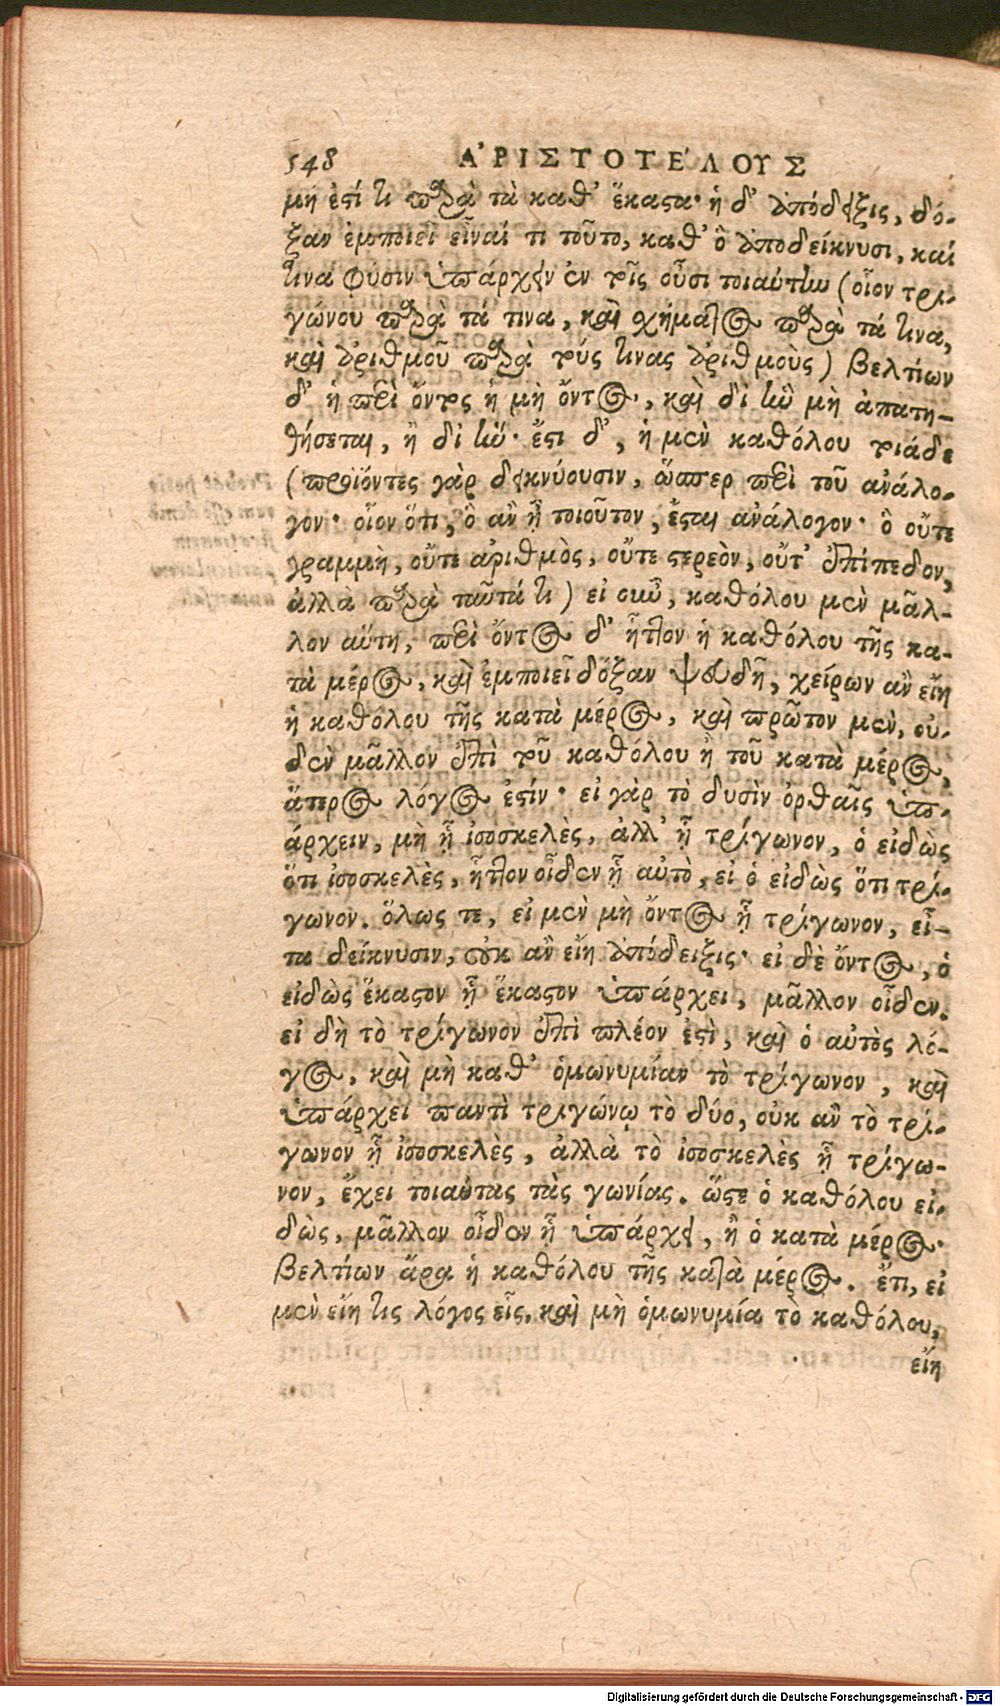 548 ΑʼΡΙΣΤΟΤΕʹΛΟΥΣ
μή ἐστί τι παρὰ τὰ καθ' ἕκαστα· ἡ δ' ἀπόδειξις, δό-
ξαν ἐμποιεῖ εἶναί τι τοῦτο, καθ' ὃ ἀποδείκνυσι, καί
τινα φύσιν ὑπάρχειν ἐν τοῖς οὖσι ταύτην (οἷον τρι-
γώνου παρὰ τά τινα, καὶ σχήματος παρὰ τά τινα,
καὶ ἀριθμοῦ παρὰ τούς τινας ἀριθμοὺς) βελτίων
δ' ἡ περὶ ὄντος ἢ μὴ ὄντος, καὶ δι' ἣν μὴ ἀπατη-
θήσεται, ἢ δι' ἥν· ἔστι δ', ἡ μὲν καθόλου τοιάδε
(προϊόντες γὰρ δεικνύουσιν, ὥσπερ περὶ τοῦ ἀνάλο-
γον· οἷον ὅτι, ὃ ἂν ᾖ τοιοῦτον, ἔσται ἀνάλογον· ὃ οὔτε
γραμμὴ, οὔτε ἀριθμὸς, οὔτε στερεὸν, οὔτ' ἐπίπεδον,
ἀλλὰ παρὰ ταῦτά τι) εἰ οὖν, καθόλου μὲν μᾶλ-
λον αὕτη, περὶ ὄντος δ' ἧττον ἡ καθόλου τῆς κα-
τὰ μέρος, καὶ ἐμποιεῖ δόξαν ψευδῆ, χείρων ἂν εἴη
ἡ καθόλου τῆς κατὰ μέρος, καὶ πρῶτον μὲν, οὐ-
δὲν μᾶλλον ἐπὶ τοῦ καθόλου ἢ τοῦ κατὰ μέρος,
ἅτερος λόγος ἐστίν· εἰ γὰρ τὸ δυσὶν ὀρθαῖς ὑπ-
άρχειν, μὴ ᾗ ἰσοσκελὲς, ἀλλ' ᾗ τρίγωνον, ὁ εἰδὼς
ὅτι ἰσοσκελὲς, ἧττον οἶδεν ᾗ αὐτὸ, εἰ ὁ εἰδὼς ὅτι τρί-
γωνον. ὅλως τε, εἰ μὲν μὴ ὄντος ᾗ τρίγωνον, εἶ-
τα δείκνυσιν, οὐκ ἂν εἴη ἀπόδειξις· εἰ δὲ ὄντος, ὁ
εἰδὼς ἕκαστον ᾗ ἕκαστον ὑπάρχει, μᾶλλον οἶδεν.
εἰ δὴ τὸ τρίγωνον ἐπὶ πλέον ἐστὶ, καὶ ὁ αὐτὸς λό-
γος, καὶ μὴ καθ' ὁμωνυμίαν τὸ τρίγωνον, καὶ
ὑπάρχει παντὶ τριγώνῳ τὸ δύο, οὐκ ἂν τὸ τρί-
γωνον ᾗ ἰσοσκελὲς, ἀλλὰ τὸ ἰσοσκελὲς ᾗ τρίγω-
νον, ἔχει τοιαύτας τὰς γωνίας. ὥστε ὁ καθόλου εἰ-
δὼς, μᾶλλον οἶδεν ᾗ ὑπάρχει, ἢ ὁ κατὰ μέρος·
βελτίων ἄρα ἡ καθόλου τῆς κατὰ μέρος. ἔτι, εἰ
μὲν εἴη τις λόγος εἷς, καὶ μὴ ὁμωνυμία τὸ καθόλου,
εἴη
Digitalisierung gefördert durch die Deutsche Forschungsgemeinschaft - DFG